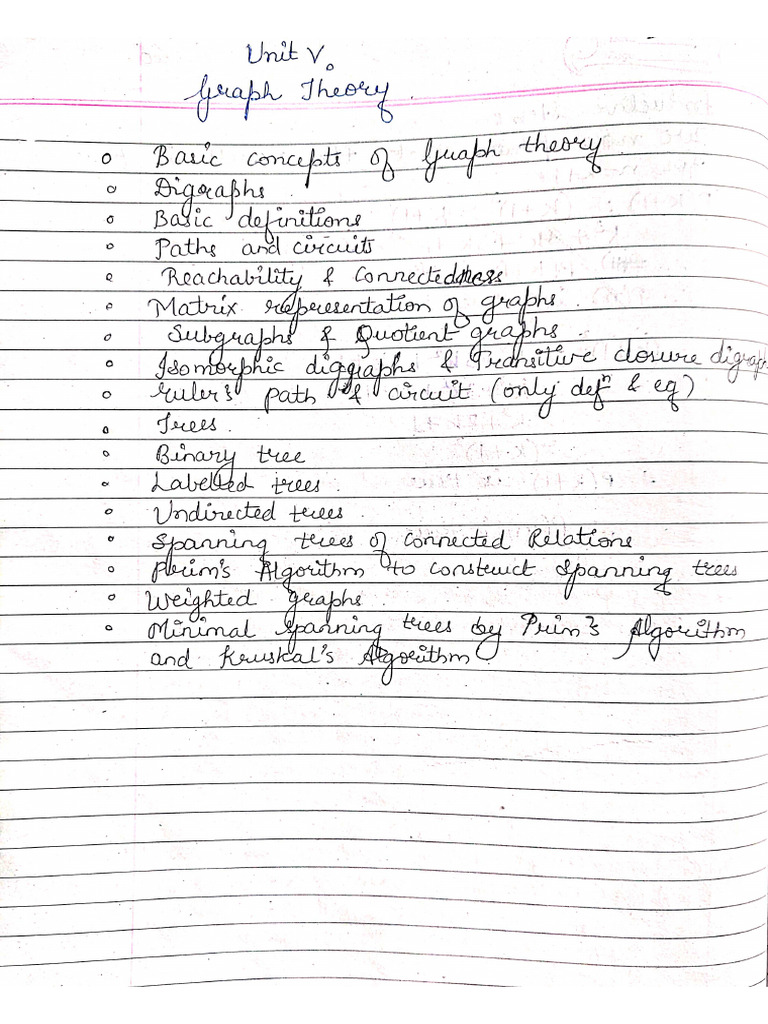 Unit V.
Graph Theory.
Basic concepts of Graph theory.
Digraphs.
Basic definitions
Paths and circuits
Reachability & Connectedness
Matrix representation of graphs.
Subgraphs & Quotient graphs.
Isomorphic diggraphs & Transitive closure digraph
Euler's path & circuit (only defn & eg)
Trees.
Binary tree
Labelled trees.
Undirected trees.
Spanning trees of Connected Relations
Prim's Algorithm to construct Spanning trees
Weighted graphs.
Minimal spanning trees by Prim's Algorithm
and Kruskal's Algorithm.